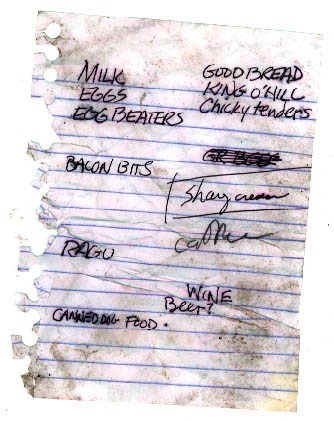 MILK
EGGS
EGG BEATERS
BACON BITS
RAGU
CANNED DOG FOOD.
GOOD BREAD
KING O'HILL
Chicky tenders
shay cream
WINE
Beer?